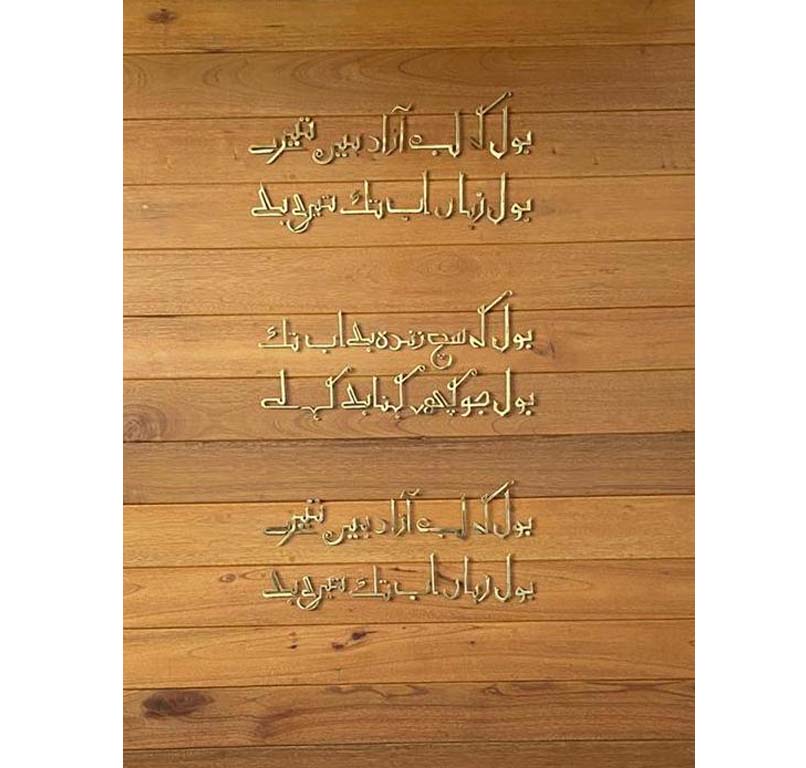 بول کہ لب آزاد ہیں تیرے
بول زباں اب تک تیری ہے
بول کہ سچ زندہ ہے اب تک
بول جو کچھ کہنا ہے کہہ لے
بول کہ لب آزاد ہیں تیرے
بول زباں اب تک تیری ہے